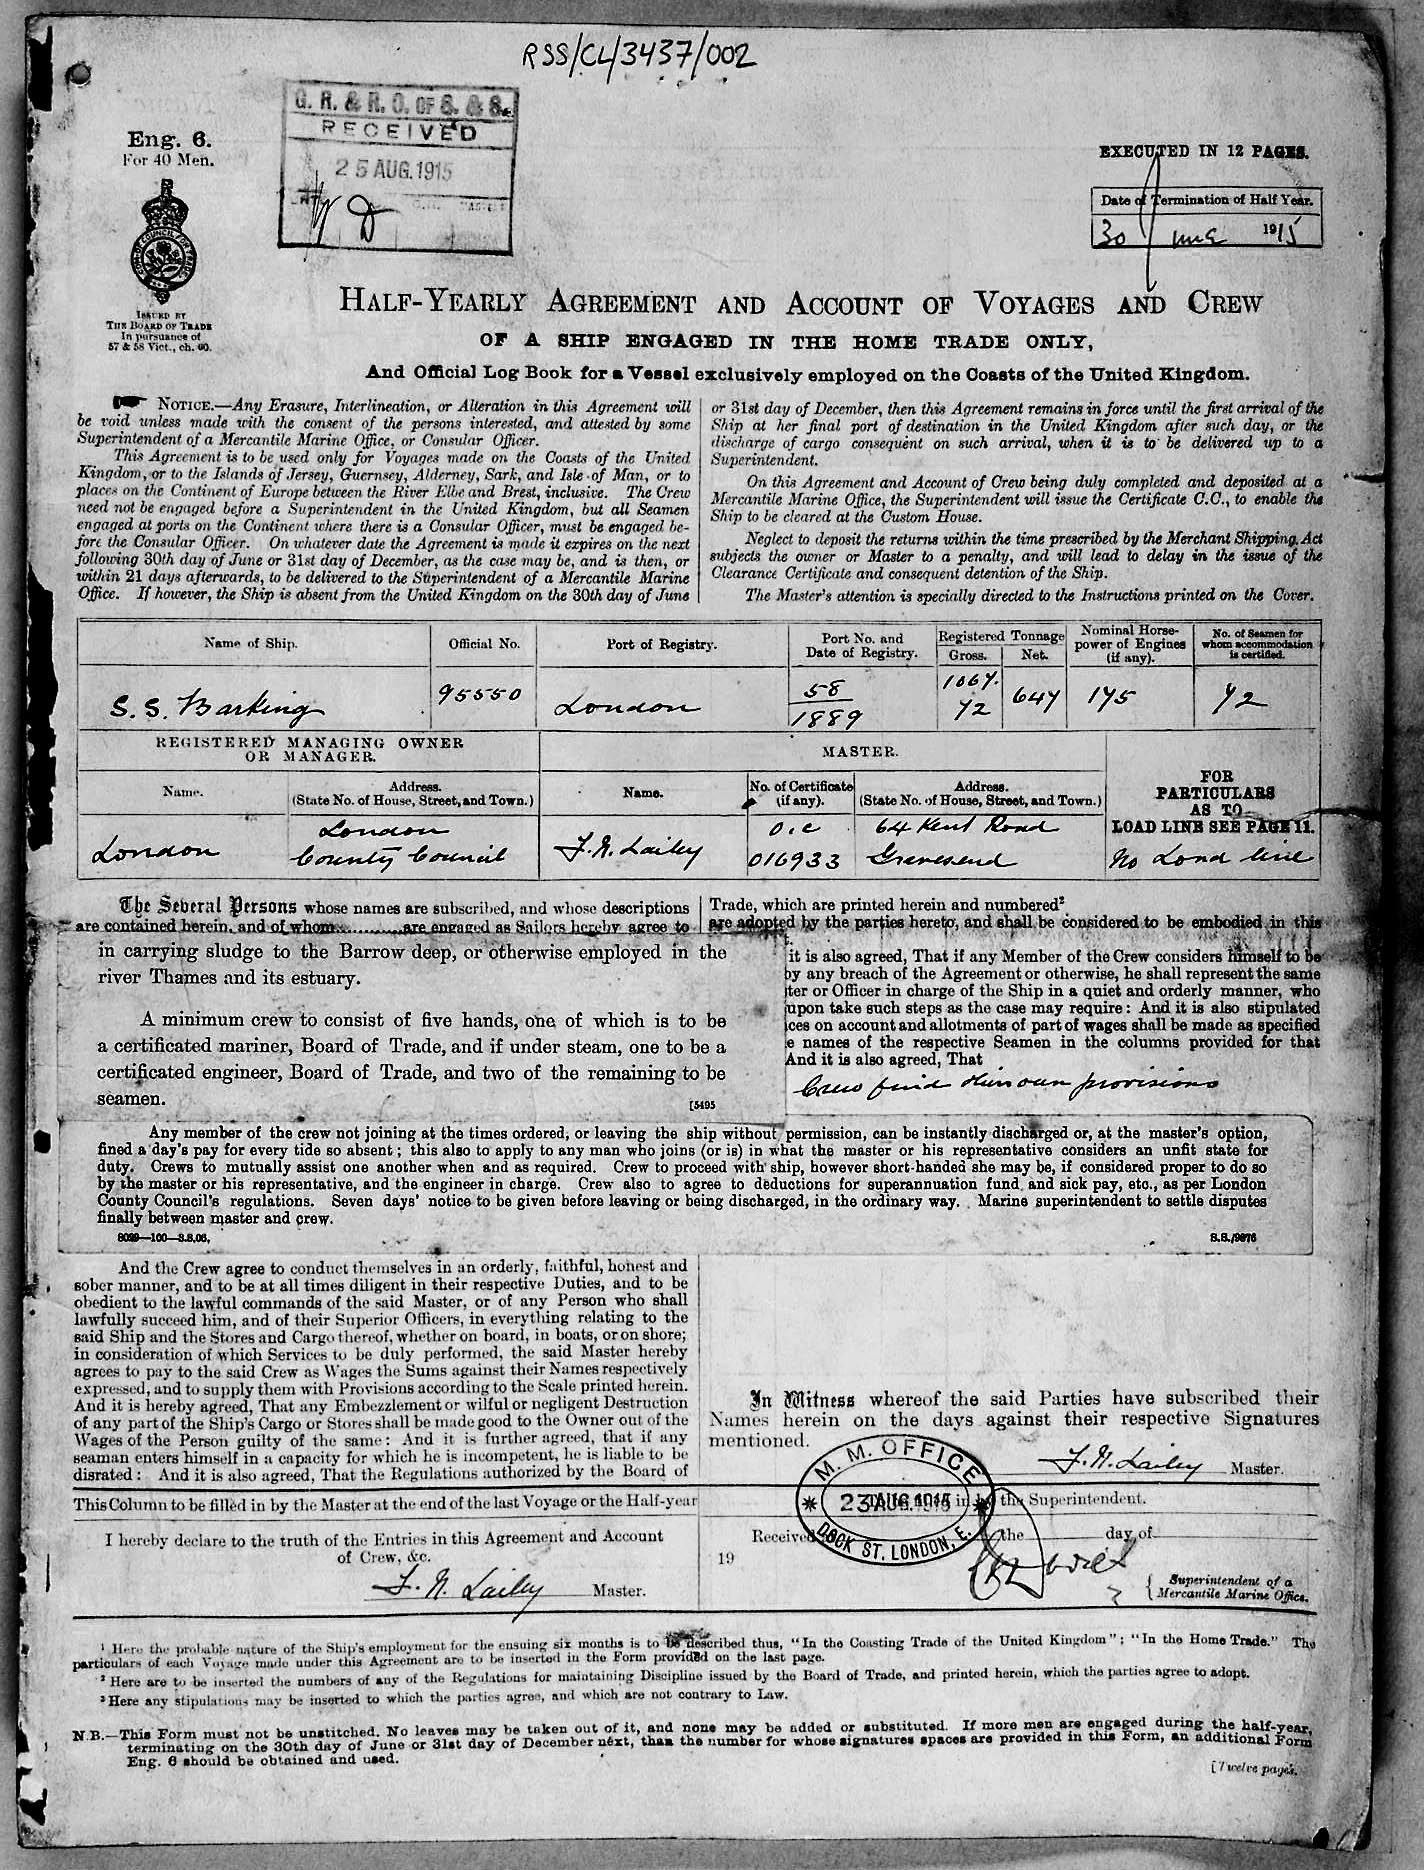 RSS/CL/3437/002
G. R. & R. O. OF S. & S.
RECEIVED
25 AUG. 1915
Eng. 6.
For 40 Men.
ISSUED BY
THE BOARD OF TRADE
In pursuance of
57 & 58 Vict., ch. 60.
EXECUTED IN 12 PAGES.
Date of Termination of Half Year.
30 June 1915
HALF-YEARLY AGREEMENT AND ACCOUNT OF VOYAGES AND CREW
OF A SHIP ENGAGED IN THE HOME TRADE ONLY,
And Official Log Book for a Vessel exclusively employed on the Coasts of the United Kingdom.
NOTICE.—Any Erasure, Interlineation, or Alteration in this Agreement will
be void unless made with the consent of the persons interested, and attested by some
Superintendent of a Mercantile Marine Office, or Consular Officer.
This Agreement is to be used only for Voyages made on the Coasts of the United
Kingdom, or to the Islands of Jersey, Guernsey, Alderney, Sark, and Isle of Man, or to
places on the Continent of Europe between the River Elbe and Brest, inclusive. The Crew
need not be engaged before a Superintendent in the United Kingdom, but all Seamen
engaged at ports on the Continent where there is a Consular Officer, must be engaged be-
fore the Consular Officer. On whatever date the Agreement is made it expires on the next
following 30th day of June or 31st day of December, as the case may be, and is then, or
within 21 days afterwards, to be delivered to the Superintendent of a Mercantile Marine
Office. If however, the Ship is absent from the United Kingdom on the 30th day of June
or 31st day of December, then this Agreement remains in force until the first arrival of the
Ship at her final port of destination in the United Kingdom after such day, or the
discharge of cargo consequent on such arrival, when it is to be delivered up to a
Superintendent.
On this Agreement and Account of Crew being duly completed and deposited at a
Mercantile Marine Office, the Superintendent will issue the Certificate C.C., to enable the
Ship to be cleared at the Custom House.
Neglect to deposit the returns within the time prescribed by the Merchant Shipping Act
subjects the owner or Master to a penalty, and will lead to delay in the issue of the
Clearance Certificate and consequent detention of the Ship.
The Master's attention is specially directed to the Instructions printed on the Cover.
Name of Ship.
Official No.
Port of Registry.
Port No. and
Date of Registry.
Registered Tonnage
Gross.
Net.
Nominal Horse-
power of Engines
(if any).
No. of Seamen for
whom accommodation
is certified.
S.S. Barking
95550
London
58
1889
1067.
72
647
175
72
REGISTERED MANAGING OWNER
OR MANAGER.
MASTER.
Name.
Address.
(State No. of House, Street, and Town.)
Name.
No. of Certificate
(if any).
Address.
(State No. of House, Street, and Town.)
FOR
PARTICULARS
AS TO
LOAD LINE SEE PAGE 11.
London
London
County Council
F. N. Lailey
O.C
016933
64 Kent Road
Gravesend
No Load line
The Several Persons whose names are subscribed, and whose descriptions
are contained herein, and of whom............are engaged as Sailors hereby agree to
in carrying sludge to the Barrow deep, or otherwise employed in the
river Thames and its estuary.
A minimum crew to consist of five hands, one of which is to be
a certificated mariner, Board of Trade, and if under steam, one to be a
certificated engineer, Board of Trade, and two of the remaining to be
seamen.
[5495
Trade, which are printed herein and numbered²
are adopted by the parties hereto, and shall be considered to be embodied in this
it is also agreed, That if any Member of the Crew considers himself to be
by any breach of the Agreement or otherwise, he shall represent the same
ter or Officer in charge of the Ship in a quiet and orderly manner, who
upon take such steps as the case may require: And it is also stipulated
ces on account and allotments of part of wages shall be made as specified
e names of the respective Seamen in the columns provided for that
And it is also agreed, That
Crew find their own provisions
Any member of the crew not joining at the times ordered, or leaving the ship without permission, can be instantly discharged or, at the master's option,
fined a day's pay for every tide so absent; this also to apply to any man who joins (or is) in what the master or his representative considers an unfit state for
duty. Crews to mutually assist one another when and as required. Crew to proceed with ship, however short-handed she may be, if considered proper to do so
by the master or his representative, and the engineer in charge. Crew also to agree to deductions for superannuation fund and sick pay, etc., as per London
County Council's regulations. Seven days' notice to be given before leaving or being discharged, in the ordinary way. Marine superintendent to settle disputes
finally between master and crew.
8029—100—3.8.06.
S.S./9876
And the Crew agree to conduct themselves in an orderly, faithful, honest and
sober manner, and to be at all times diligent in their respective Duties, and to be
obedient to the lawful commands of the said Master, or of any Person who shall
lawfully succeed him, and of their Superior Officers, in everything relating to the
said Ship and the Stores and Cargo thereof, whether on board, in boats, or on shore;
in consideration of which Services to be duly performed, the said Master hereby
agrees to pay to the said Crew as Wages the Sums against their Names respectively
expressed, and to supply them with Provisions according to the Scale printed herein.
And it is hereby agreed, That any Embezzlement or wilful or negligent Destruction
of any part of the Ship's Cargo or Stores shall be made good to the Owner out of the
Wages of the Person guilty of the same: And it is further agreed, that if any
seaman enters himself in a capacity for which he is incompetent, he is liable to be
disrated: And it is also agreed, That the Regulations authorized by the Board of
In Witness whereof the said Parties have subscribed their
Names herein on the days against their respective Signatures
mentioned.
F. N. Lailey Master.
This Column to be filled in by the Master at the end of the last Voyage or the Half-year
I hereby declare to the truth of the Entries in this Agreement and Account
of Crew, &c.
F. N. Lailey Master.
in by the Superintendent.
M. M. OFFICE
23 AUG. 1915
DOCK ST. LONDON, E.
Received the day of
19
Superintendent of a
Mercantile Marine Office.
¹ Here the probable nature of the Ship's employment for the ensuing six months is to be described thus, "In the Coasting Trade of the United Kingdom"; "In the Home Trade." The
particulars of each Voyage made under this Agreement are to be inserted in the Form provided on the last page.
² Here are to be inserted the numbers of any of the Regulations for maintaining Discipline issued by the Board of Trade, and printed herein, which the parties agree to adopt.
³ Here any stipulations may be inserted to which the parties agree, and which are not contrary to Law.
N.B.—This Form must not be unstitched. No leaves may be taken out of it, and none may be added or substituted. If more men are engaged during the half-year,
terminating on the 30th day of June or 31st day of December next, than the number for whose signatures spaces are provided in this Form, an additional Form
Eng. 6 should be obtained and used.
[Twelve pages.